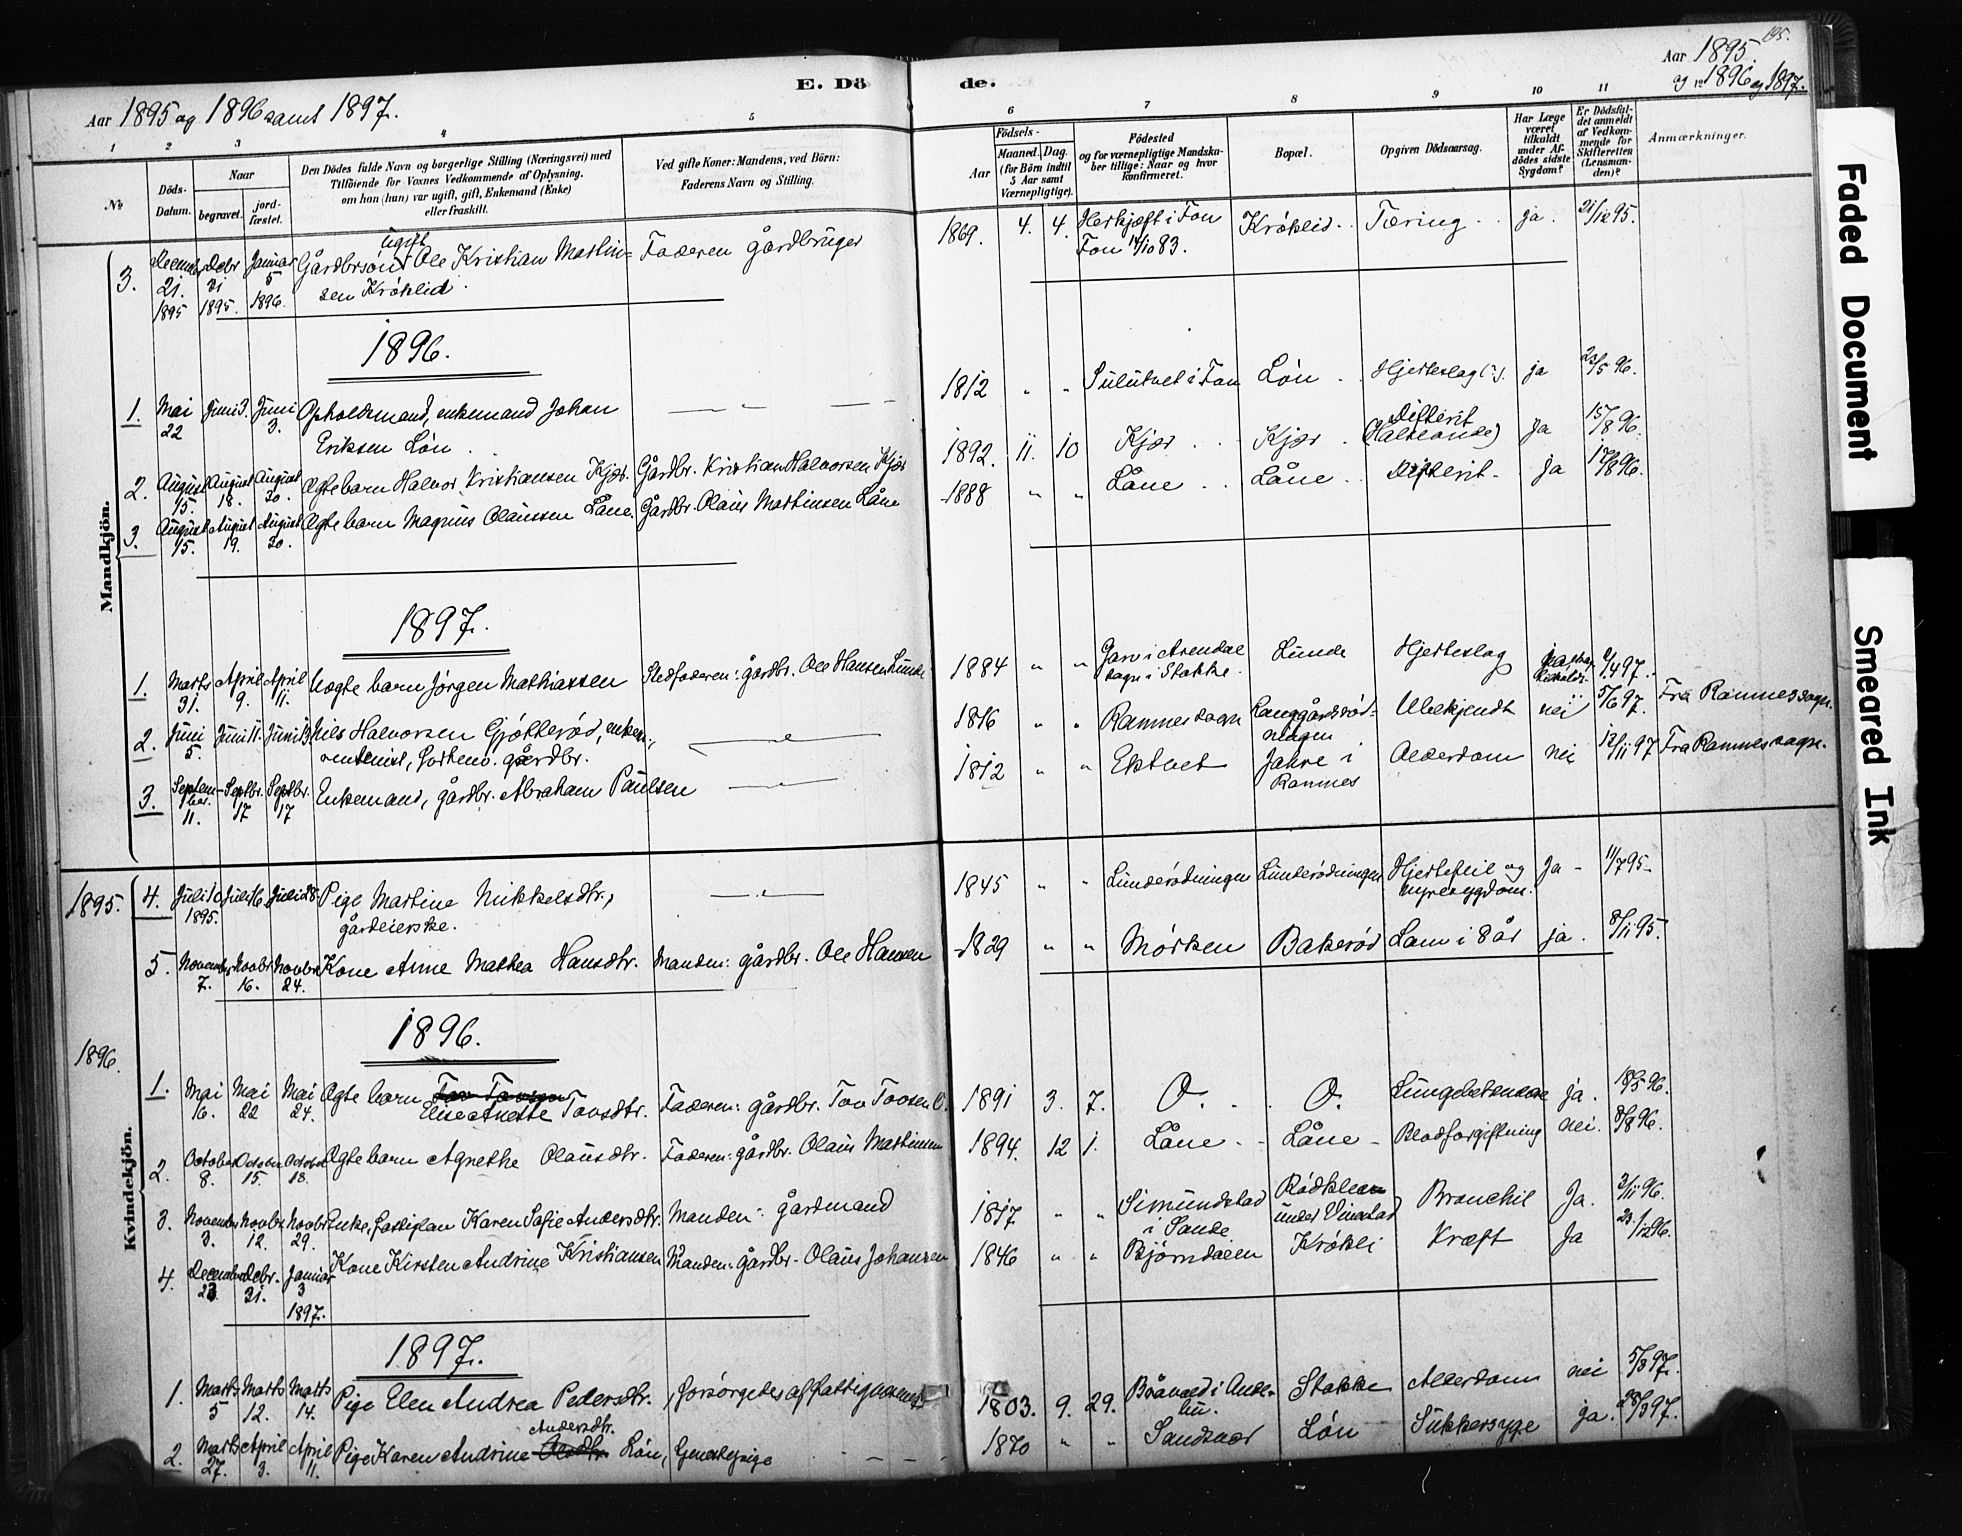 195.
Aar 1895 og 1896 samt 1897.
E. Dö
de.
Aar 1895.
og 1896 og 1897.
1 2 3 4 5
6 7 8 9 10 11
No
Döds-
Datum.
Naar
begravet.
jord-
fæstet.
Den Dödes fulde Navn og borgerlige Stilling (Næringsvei) med
Tilföiende for Voxnes Vedkommende af Oplysning,
om han (hun) var ugift, gift, Enkemand (Enke)
eller fraskilt.
Ved gifte Koner: Mandens, ved Börn:
Faderens Navn og Stilling.
Födsels-
Aar
Maaned. Dag.
(for Börn indtil
5 Aar samt
Værnepligtige).
Födested
og for værnepligtige Mandska-
ber tillige: Naar og hvor
konfirmeret.
Bopæl.
Opgiven Dödsaarsag.
Har Læge
været
tilkaldt
under Af-
dödes sidste
Sygdom?
Er Dödsfal-
det anmeldt
af Vedkom-
mende for
Skifteretten
(Lensman-
den)?
Anmærkninger.
Mandkjön.
3. December 21. 1895 Debr 31 1895. Januar 5 1896. Gårdbrsön ugift Ole Kristian Martin-
sen Króklid.
Faderen gårdbruger
1869. 4. 4. Herkjæft i Fon
Fon 14/10 83.
Króklid. Tæring. ja. 21/12 95.
1896.
1. Mai 22 Juni 3. Juni 3. Opholdsmand, enkemand Johan
Eriksen Lón.
1812 " " i Fon Lón Hjerteslag (?). ja 23/5 96.
2. August 15. August 18. August 30. Ægte barn Halvor Kristiansen Kjær. Gårdbr. Kristian Halvorsen Kjær
1892. 11. 10 Kjær Kjær Difterit
(Halseonde) Ja 15/8 96.
3. August 15. August 19. August 30. Ægte barn Magnus Olaussen Låne. Gårdbr. Olaus Martinsen Låne
1888 " " Låne Låne Difterit ja 17/8 96.
1897.
1. Marts 31. April 9. April 11. Uægte barn Jörgen Mathiassen Stedfaderen: gårdbr. Ole Hansen Lunde
1884 " " i Arendal
sogn i Stokke. Lunde Hjerteslag 4 97.
2. Juni 5. Juni 11. Juni 13. Nils Halvorsen Gjótteród, enkem.,
rentenist, gårdbr.
1816 " " Ramnes sogn Ubekjendt nei 5/6 97. Fra Ramnes sogn.
3. Septem-
ber. 11. Septbr. 17 Septbr. 17 Enkemand, gårdbr. Abraham Paulsen
1812 " " Ektvet Jahre i
Ramnes Alderdom nei 12/11 97 Fra Ramnes sogn.
Kvindekjön.
1895. 4. Juli 10 1895. Juli 16. Juli 28. Pige Martine Nikkelsdtr.,
gårdeierske.
1845 " " Lunderódningen Lunderódningen Hjertefeil og
nyresygdom. Ja 11/7 95
5. November 7. Novbr 16. Novbr 24. Kone Anne Mathea Hansdtr. Manden: gårdbr. Ole Hansen
1829 " " Mórken Bakeród Lam i 8 år ja. 8/11 95.
1896.
1896.
1. Mai 16. Mai 22 Mai 24. Ægte barn Tov Tovsen
Elise Anette Tovsdtr. Faderen: gårdbr. Tov Tovsen O.
1891 3. 7. O. O. Lungebetendelse ja. 18/5 96.
2. October 8. October 15. October 18. Ægte barn Agnethe Olausdtr. Faderen: gårdbr. Olaus Martinsen
1894. 12 1. Låne Låne Blodforgiftning nei. 8/8 96.
3. November 3. Novbr 12. Novbr 29. Enke, Karen Sofie Andersdtr. Manden: gårdmand
1817 " " Simundstad
i Sande Bronchit Ja. 3/11 96.
4. December 23 Debr. 31. Januar 3 1897. Kone Kirsten Andrine Kristiansen Manden: gårdbr. Olaus Johansen
1846 " " Bjórndalen Krókli Kræft Ja 23/12 96.
1897.
1. Marts 5 Marts 12. Marts 14. Pige Elen Andrea Pedersdtr. forsórgedes af fattigvæsenet
1803. 9. 29. Stokke Alderdom nei 5/3 97.
2. Marts 27. April 3. April 11. Pige Karen Andrine Andersdtr. Lón,
1870 " " Lón Sukkersyge ja. 28/3 97.
Faded Document
Smeared Ink